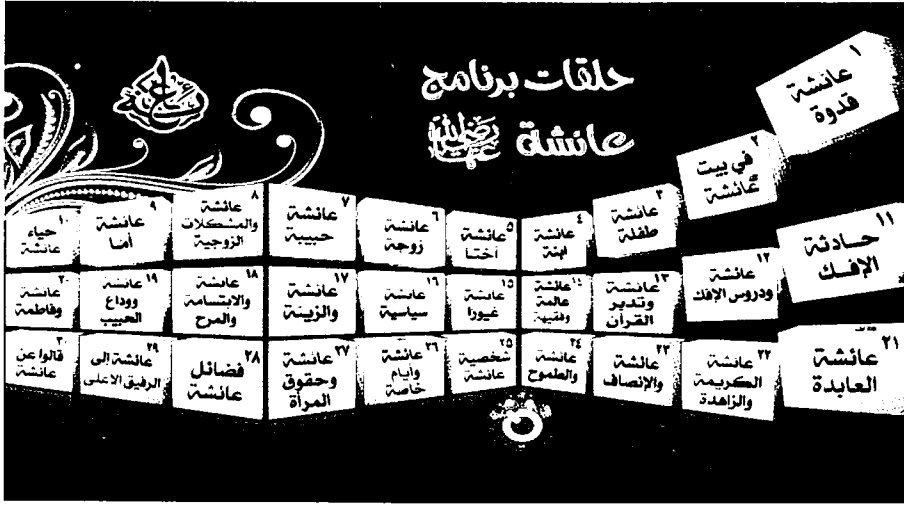 حلقات برنامج
عائشة رضي الله عنها
١
عائشة
قدوة
٢
في بيت
عائشة
٣
عائشة
طفلة
٤
عائشة
ابنة
٥
عائشة
أختا
٦
عائشة
زوجة
٧
عائشة
حبيبة
٨
عائشة
والمشكلات
الزوجية
٩
عائشة
أما
١٠
حياء
عائشة
١١
حادثة
الإفك
١٢
عائشة
ودروس الإفك
١٣
عائشة
وتدبر
القرآن
١٤
عائشة
عالمة
وفقيهة
١٥
عائشة
غيورا
١٦
عائشة
سياسية
١٧
عائشة
والزينة
١٨
عائشة
والابتسامة
والمرح
١٩
عائشة
ووداع
الحبيب
٢٠
عائشة
وفاطمة
٢١
عائشة
العابدة
٢٢
عائشة
الكريمة
والزاهدة
٢٣
عائشة
والإنصاف
٢٤
عائشة
والطموح
٢٥
شخصية
عائشة
٢٦
عائشة
وأيام
خاصة
٢٧
عائشة
وحقوق
المرأة
٢٨
فضائل
عائشة
٢٩
عائشة إلى
الرفيق الأعلى
٣٠
قالوا عن
عائشة